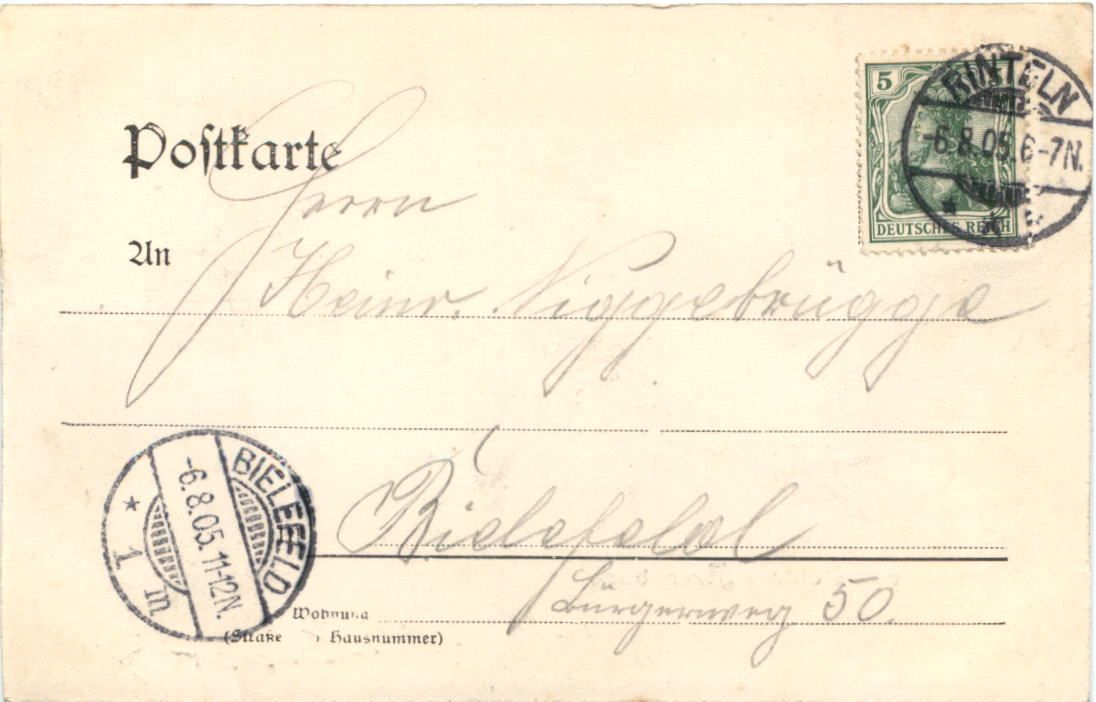 Postkarte
5
DEUTSCHES REICH
RINTELN
-6.8.05.6-7N.
Herrn
An
Heinr. Niggebrügge
Bielefeld
BIELEFELD
-6.8.05.11-12N.
* 1 m
Bürgerweg 50.
Wohnung
(Straße Hausnummer)